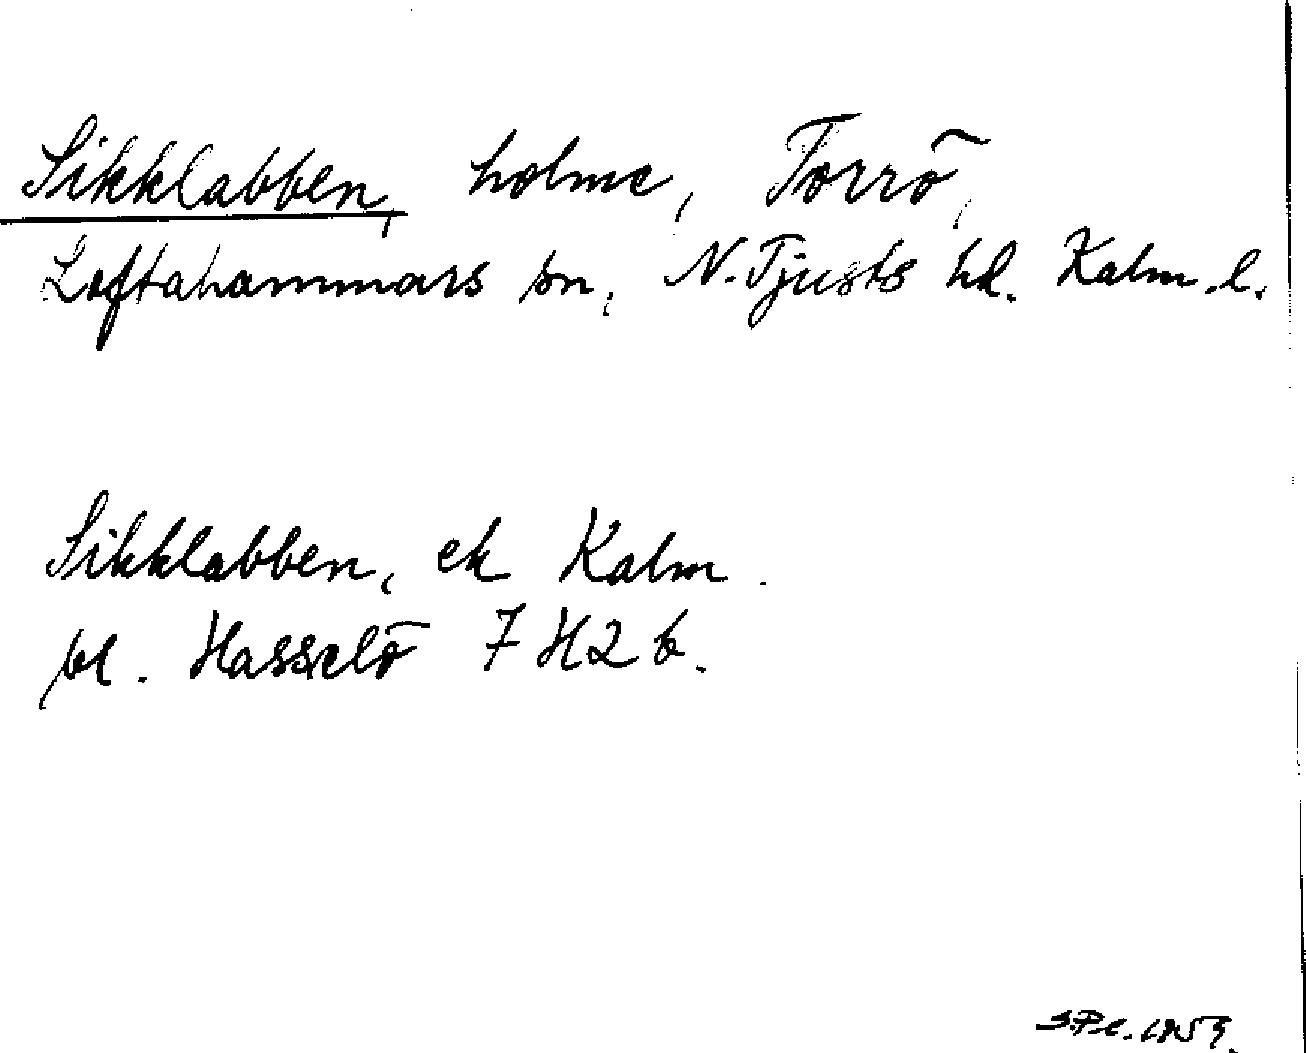 Sikklabben, holme, Torrö,
Loftahammars sn, N. Tjusts hd. Kalm. l.
Sikklabben, ek Kalm.
bl. Hasselö 7 H 2 b.